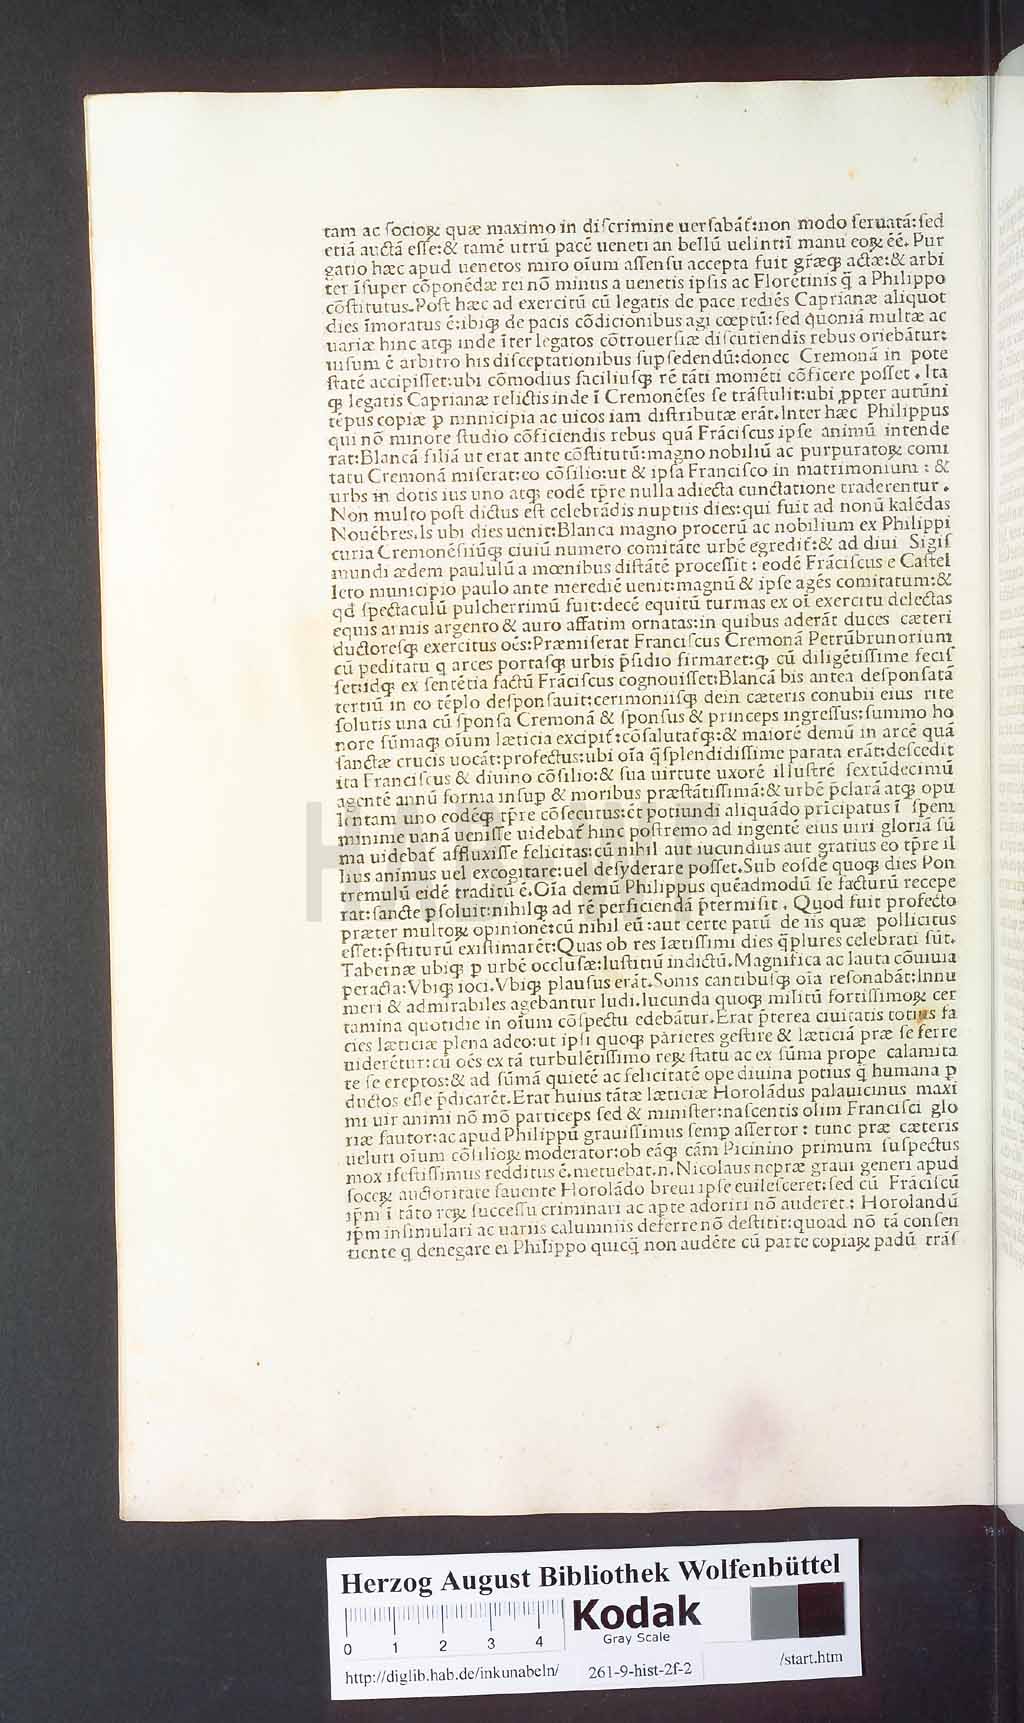 tam ac ſocioꝝ quæ maximo in diſcrimine uerſabãt̃:non modo ſeruatã:ſed
etiã auctã eſſe:& tamẽ utrũ pacẽ ueneti an bellũ uelint:ĩ manu eoꝝ eẽ. Pur
gatio hæc apud uenetos miro oĩum aſſenſu accepta fuit gr̃æqꝫ actæ:& arbi
ter ĩſuper cõponẽdæ rei nõ minus a uenetis ipſis ac Florẽtinis q̃ a Philippo
cõſtitutus. Poſt hæc ad exercitũ cũ legatis de pace rediẽs Caprianæ aliquot
dies ĩmoratus ẽ:ibiqꝫ de pacis cõdicionibus agi cœptũ:ſed quoniã multæ ac
uariæ hinc atqꝫ inde ĩter legatos cõtrouerſiæ diſcutiendis rebus oriebãtur:
uiſum ẽ arbitro his diſceptationibus ſupſedendũ:donec Cremonã in pote
ſtatẽ accipiſſet:ubi cõmodius faciliuſqꝫ rẽ tãti momẽti cõficere poſſet. Ita
qꝫ legatis Caprianæ relictis inde ĩ Cremonẽſes ſe trãſtulit:ubi ꝓpter autũni
tẽpus copiæ ꝑ mnnicipia ac uicos iam diſtributæ erãt. Inter hæc Philippus
qui nõ minore ſtudio cõficiendis rebus quã Frãciſcus ipſe animũ intende
rat:Blancã filiã ut erat ante cõſtitutũ:magno nobiliũ ac purpuratoꝝ comi
tatu Cremonã miſerat:eo cõſilio:ut & ipſa Franciſco in matrimonium : &
urbs in dotis ius uno atqꝫ eodẽ tp̃re nulla adiecta cunctatione traderentur.
Non multo poſt dictus eſt celebrãdis nuptiis dies:qui fuit ad nonũ kalẽdas
Nouẽbres. Is ubi dies uenit:Blanca magno procerũ ac nobilium ex Philippi
curia Cremonẽſiũqꝫ ciuiũ numero comitãte urbẽ egredit̃:& ad diui Sigiſ
mundi ædem paululũ a mœnibus diſtãtẽ proceſſit : eodẽ Frãciſcus e Caſtel
leto municipio paulo ante meredie uenit:magnũ & ipſe agẽs comitatum:&
qd ſpectaculũ pulcherrimũ fuit:decẽ equitũ turmas ex oĩ exercitu delectas
equis armis argento & auro affatim ornatas:in quibus aderãt duces cæteri
ductoreſqꝫ exercitus oẽs:Præmiſerat Franciſcus Cremonã Petrũbrunorium
cũ peditatu q arces portaſqꝫ urbis p̃ſidio firmaret:qꝫ cũ diligẽtiſſime feciſ
ſet:idqꝫ ex ſentẽtia factũ Frãciſcus cognouiſſet:Blancã bis antea deſponſatã
tertiũ in eo tẽplo deſponſauit:cerimoniiſqꝫ dein cæteris conubii eius rite
ſolutis una cũ ſponſa Cremonã & ſponſus & princeps ingreſſus:ſummo ho
nore ſũmaqꝫ oĩum læticia excipit̃:cõſalutat̃qꝫ:& maiorẽ demũ in arcẽ quã
ſanctæ crucis uocãt:profectus:ubi oĩa q̃ſplendidiſſime parata erãt:deſcedit
ita Franciſcus & diuino cõſilio:& ſua uirtute uxorẽ illuſtrẽ ſextũdecimũ
agentẽ annũ forma inſuꝑ & moribus præſtãtiſſimã:& urbẽ p̃clarã atqꝫ opu
lentam uno eodẽqꝫ tp̃re cõſecutus:ẽt potiundi aliquãdo prĩcipatus ĩ ſpem
minime uanã ueniſſe uidebat̃ hinc poſtremo ad ingentẽ eius uiri gloriã ſũ
ma uidebat̃ affluxiſſe felicitas:cũ nihil aut iucundius aut gratius eo tp̃re il
lius animus uel excogitare:uel deſyderare poſſet. Sub eoſdẽ quoqꝫ dies Pon
tremulũ eidẽ traditũ ẽ. Oĩa demũ Philippus quẽadmodũ ſe facturũ recepe
rat:ſancte ꝑſoluit:nihilqꝫ ad rẽ perficiendã p̃termiſit. Quod fuit profecto
præter multoꝝ opinionẽ:cũ nihil eũ :aut certe parũ de iis quæ pollicitus
eſſet:p̃ſtiturũ exiſtimarẽt:Quas ob res lætiſſimi dies q̃plures celebrati ſũt.
Tabernæ ubiqꝫ ꝑ urbẽ occluſæ:Iuſtitiũ indictũ. Magnifica ac lauta cõuiuia
peracta:Vbiqꝫ ioci. Vbiqꝫ plauſus erãt. Sonis cantibuſqꝫ oĩa reſonabãt:Innu
meri & admirabiles agebantur ludi. Iucunda quoqꝫ militũ fortiſſimoꝝ cer
tamina quotidie in oĩum cõſpectu edebãtur. Erat p̃terea ciuitatis totius fa
cies læticiæ plena adeo:ut ipſi quoqꝫ parietes geſtire & læticiã præ ſe ferre
uiderẽtur:cũ oẽs ex tã turbulẽtiſſimo reꝝ ſtatu ac ex ſũma prope calamita
te ſe ereptos:& ad ſũmã quietẽ ac felicitatẽ ope diuina potius q̃ humana ꝑ
ductos eſſe p̃dicarẽt. Erat huius tãtæ læticiæ Horolãdus palauicinus maxi
mi uir animi nõ mõ particeps ſed & miniſter:naſcentis olim Franciſci glo
riæ fautor:ac apud Philippũ grauiſſimus ſemꝑ aſſertor : tunc præ cæteris
ueluti oĩum cõſilioꝝ moderator:ob eãqꝫ cãm Picinino primum ſuſpectus
mox ĩfeſtiſſimus redditus ẽ. metuebat .n. Nicolaus ne præ graui generi apud
ſoceꝝ auctoritate fauente Horolãdo breui ipſe euileſceret:ſed cũ Frãciſcũ
ip̃m ĩ tãto reꝝ ſucceſſu criminari ac apte adoriri nõ auderet : Horolandũ
ip̃m inſimulari ac uariis calumniis deferre nõ deſtitit:quoad nõ tã conſen
tiente q denegare ei Philippo quicq̃ non audẽte cũ parte copiaꝝ padũ trãſ
HAB WF
Herzog August Bibliothek Wolfenbüttel
Kodak
Gray Scale
0 1 2 3 4
http://diglib.hab.de/inkunabeln/ 261-9-hist-2f-2 /start.htm